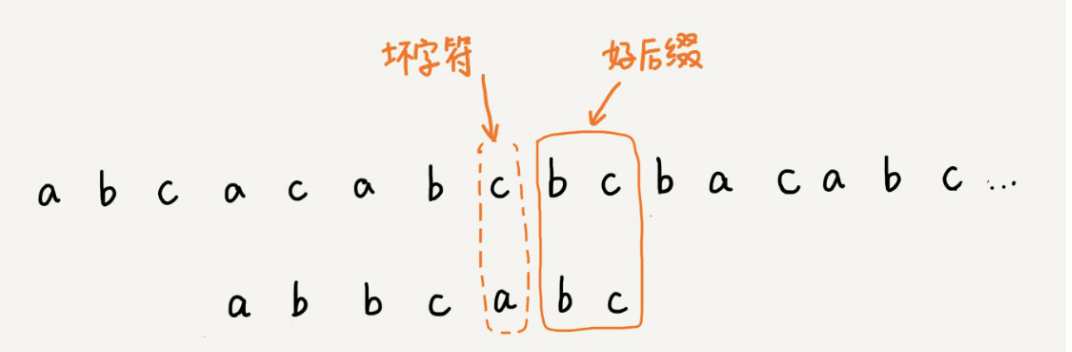 坏字符 好后缀
a b c a c a b c b c b a c a b c ...
a b b c a b c